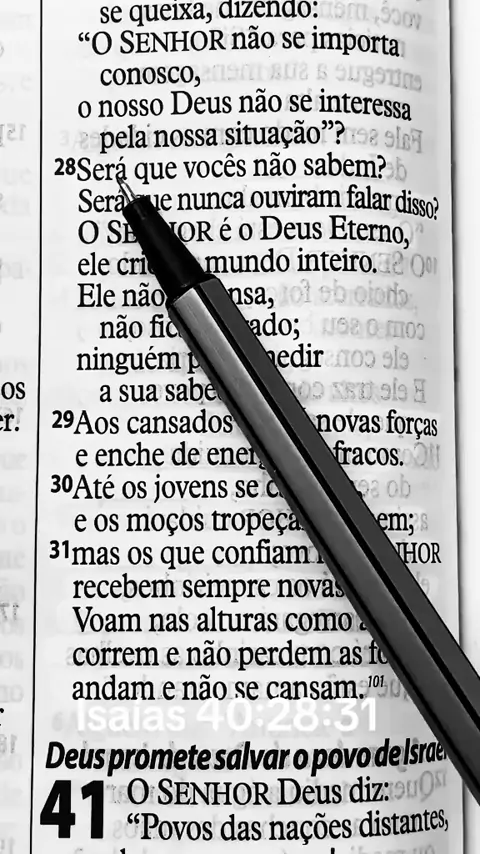 se queixa, dizendo:
“O SENHOR não se importa
conosco,
o nosso Deus não se interessa
pela nossa situação”?
28 Será que vocês não sabem?
Será que nunca ouviram falar disso?
O SENHOR é o Deus Eterno,
ele criou mundo inteiro.
Ele não
não fic ado;
ninguém p edir
a sua sabe
29 Aos cansados novas forças
e enche de energ fracos.
30 Até os jovens se c
e os moços tropeça em;
31 mas os que confiam NHOR
recebem sempre novas
Voam nas alturas como
correm e não perdem as fo
andam e não se cansam.101
Isaías 40:28-31
Deus promete salvar o povo de Israel
41 O SENHOR Deus diz:
“Povos das nações distantes,
os
er.